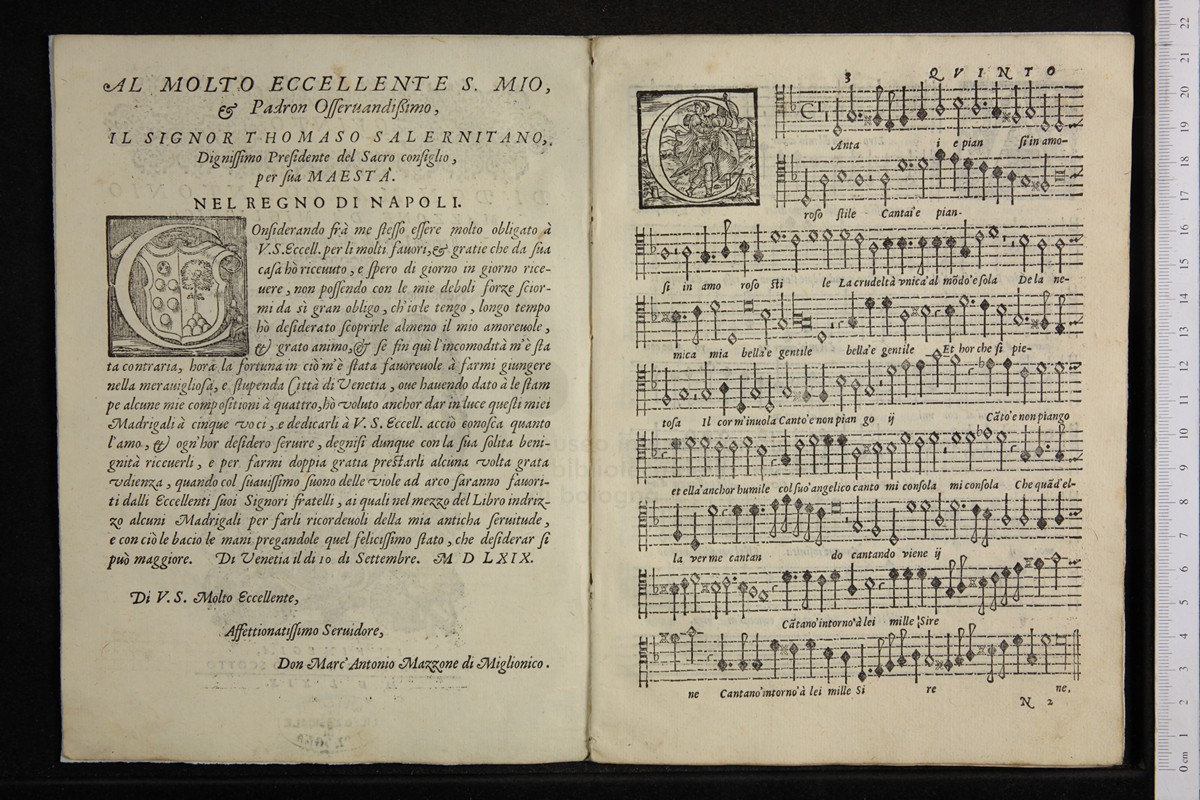 AL MOLTO ECCELLENTE S. MIO,
& Padron Osseruandißimo,
IL SIGNOR THOMASO SALERNITANO,
Dignissimo Presidente del Sacro consiglio,
per sua MAESTA'.
NEL REGNO DI NAPOLI.
COnsiderando frà me stesso essere molto obligato à
V.S.Eccell. per li molti fauori,& gratie che da sua
casa hò riceuuto, e spero di giorno in giorno rice-
uere, non possendo con le mie deboli forze scior-
mi da sì gran obligo, ch'iole tengo, longo tempo
hò desiderato scoprirle almeno il mio amoreuole,
& grato animo,& se fin quì l'incomodità m'è sta
ta contraria, hora la fortuna in ciò m'è stata fauoreuole à farmi giungere
nella merauigliosa, e stupenda Città di Venetia, oue hauendo dato à le stam
pe alcune mie compositioni à quattro, hò voluto anchor dar in luce questi miei
Madrigali à cinque voci, e dedicarli à V.S. Eccell. acciò conosca quanto
l'amo, & ogn'hor desidero seruire, degnisi dunque con la sua solita beni-
gnità riceuerli, e per farmi doppia gratia prestarli alcuna volta grata
vdienza, quando col suauissimo suono delle viole ad arco saranno fauori-
ti dalli Eccellenti suoi Signori fratelli, ai quali nel mezzo del Libro indriz-
zo alcuni Madrigali per farli ricordeuoli della mia anticha seruitude,
e con ciò le bacio le mani pregandole quel felicissimo stato, che desiderar si
può maggiore. Di Venetia il di 10 di Settembre. M D LXIX.
Di V. S. Molto Eccellente,
Affettionatissimo Seruidore,
Don Marc' Antonio Mazzone di Miglionico.
3 QVINTO
CAnta i e pian si in amo-
roso stile Cantai'e pian-
si in amo roso sti le La crudeltà vnica' al mōdo'e sola De la ne-
mica mia bella'e gentile bella'e gentile Et hor che fi pie-
tosa Il cor m'inuola Canto'e non pian go ij Cāto'e non piango
et ella'anchor humile col suo'angelico canto mi consola mi consola Che quād'el-
la ver me cantan do cantando viene ij
Cātano'intorno'à lei mille Sire
ne Cantano'intorno'à lei mille Si re ne.
N 2